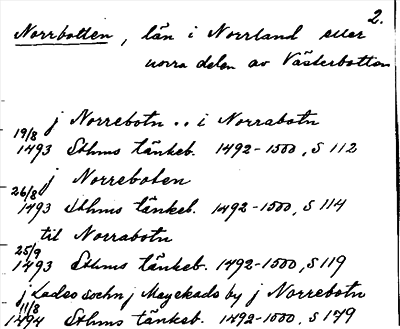 2.
Norrbotten, län i Norrland eller
norra delen av Västerbotten
j Norrebotn .. i Norrabotn
19/8 1493 Sthms tänkeb. 1492-1500, S 112
j Norreboten
26/8 1493 Sthms tänkeb. 1492-1500, S 114
til Norrabotn
25/9 1493 Sthms tänkeb. 1492-1500, S 119
j Lades sochn j Mayekads by j Norrebotn
11/8 1494 Sthms tänkeb. 1492-1500, S 179